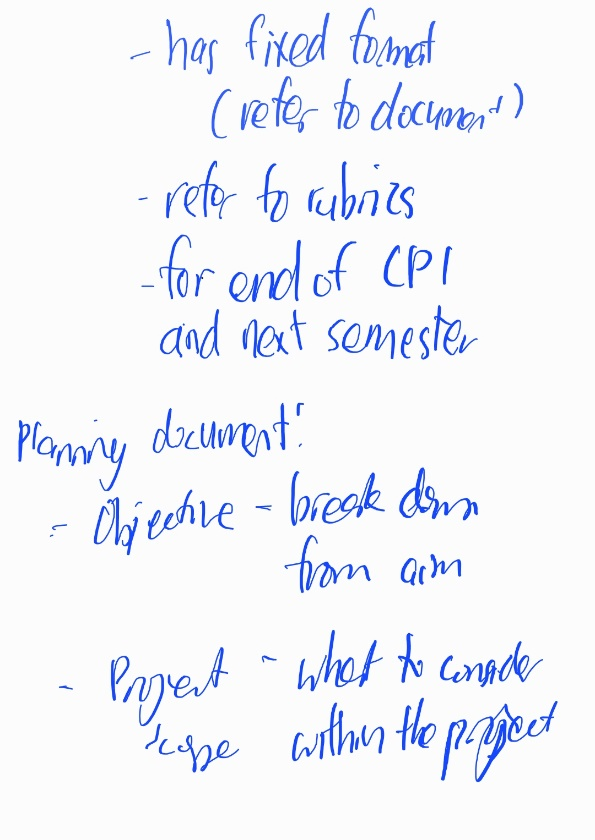 - has fixed format
(refer to document)
- refer to rubrics
- for end of CP1
and next semester
Planning document:
- Objective - break down
from aim
- Project - what to consider
scope within the project